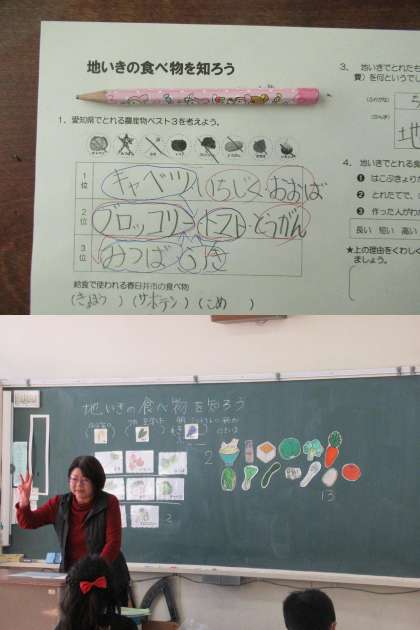 地いきの食べ物を知ろう
3、地いきでとれたも
費）を何というでし
（ふりがな） ち
（かんじ）
1、愛知県でとれる農産物ベスト3を考えよう。
1位 キャベツ いちじく・おおば
2位 ブロッコリー・トマト・とうがん
3位 みつば
給食で使われる春日井市の食べ物
（ ）（サボテン）（こめ ）
4、地いきでとれる食
❶ はこぶきょりが
❷ とれたてで、
❸ 作ったんがわ
長い 短い 高い
★上の理由をくわしく
ましょう。
地いきの食べ物を知ろう
2
13
2